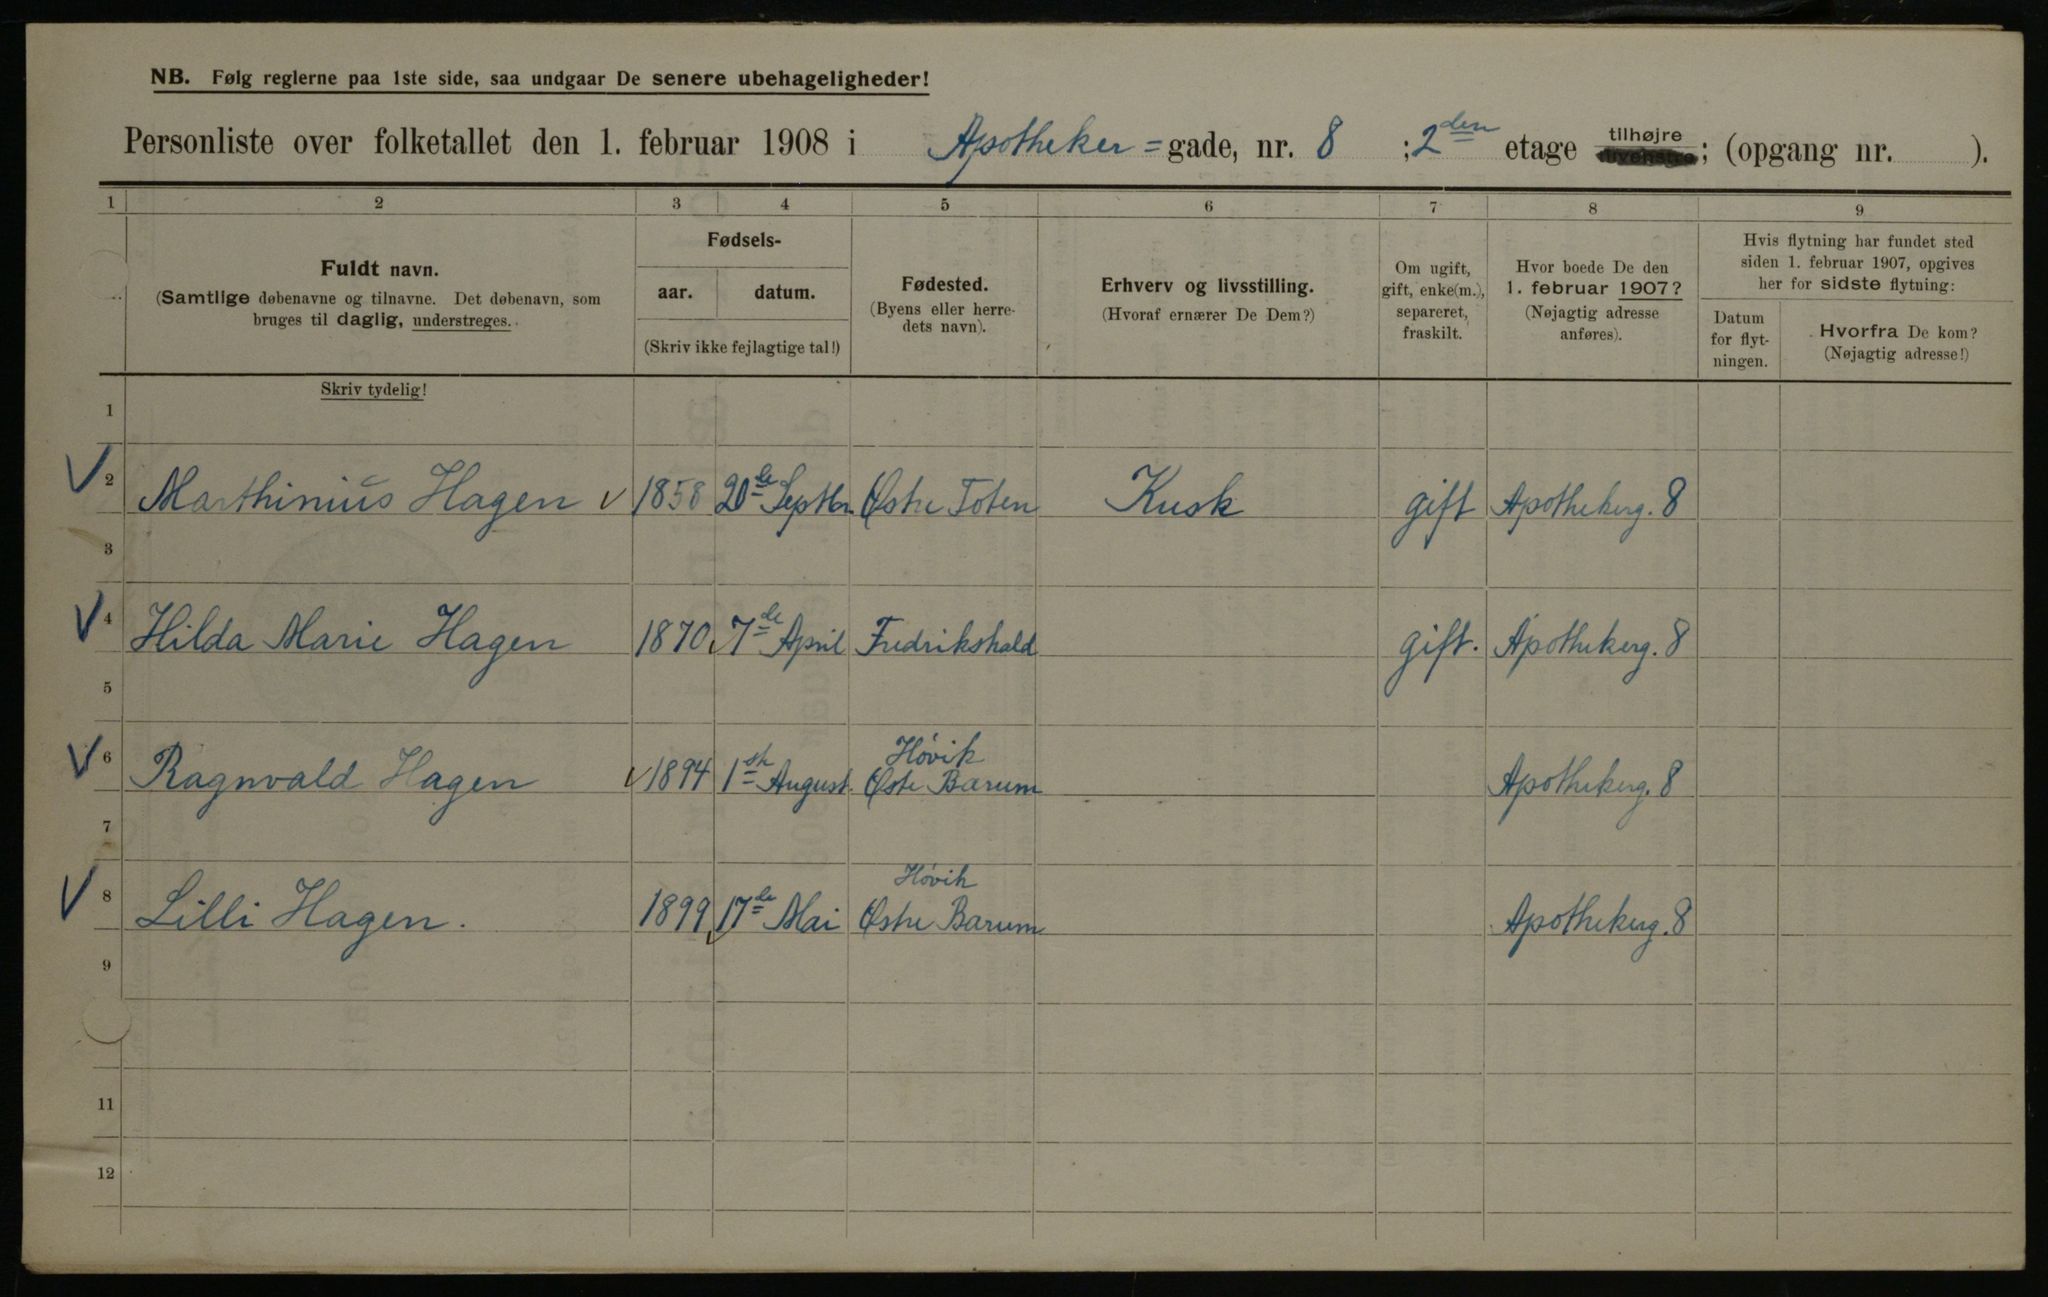 NB. Følg reglerne paa 1ste side, saa undgaar De senere ubehageligheder!
Personliste over folketallet den 1. februar 1908 i Apotheker=gade, nr. 8 ; 2den etage tilhøjre ; (opgang nr. ).
1 2 3 4 5 6 7 8 9
Fuldt navn.
(Samtlige døbenavne og tilnavne. Det døbenavn, som
bruges til daglig, understreges.
Fødsels-
aar. datum.
(Skriv ikke fejlagtige tal!)
Fødested.
(Byens eller herre-
dets navn).
Erhverv og livsstilling.
(Hvoraf ernærer De Dem?)
Om ugift,
gift, enke(m.),
separeret,
fraskilt.
Hvor boede De den
1. februar 1907?
(Nøjagtig adresse
anføres).
Hvis flytning har fundet sted
siden 1. februar 1907, opgives
her for sidste flytning:
Datum
for flyt-
ningen.
Hvorfra De kom?
(Nøjagtig adresse!)
Skriv tydelig!
1
2 Marthinius Hagen 1858 20de Septbr Østre Toten Kusk gift Apothekerg. 8
3
4 Hilda Marie Hagen 1870 7de April Fredrikshald gift. Apothekerg. 8
5
6 Ragnvald Hagen 1894 1ste August. Høvik Østre Bærum Apothekerg. 8
7
8 Lilli Hagen. 1899 17de Mai Høvik Østre Bærum Apothekerg. 8
9
11
12